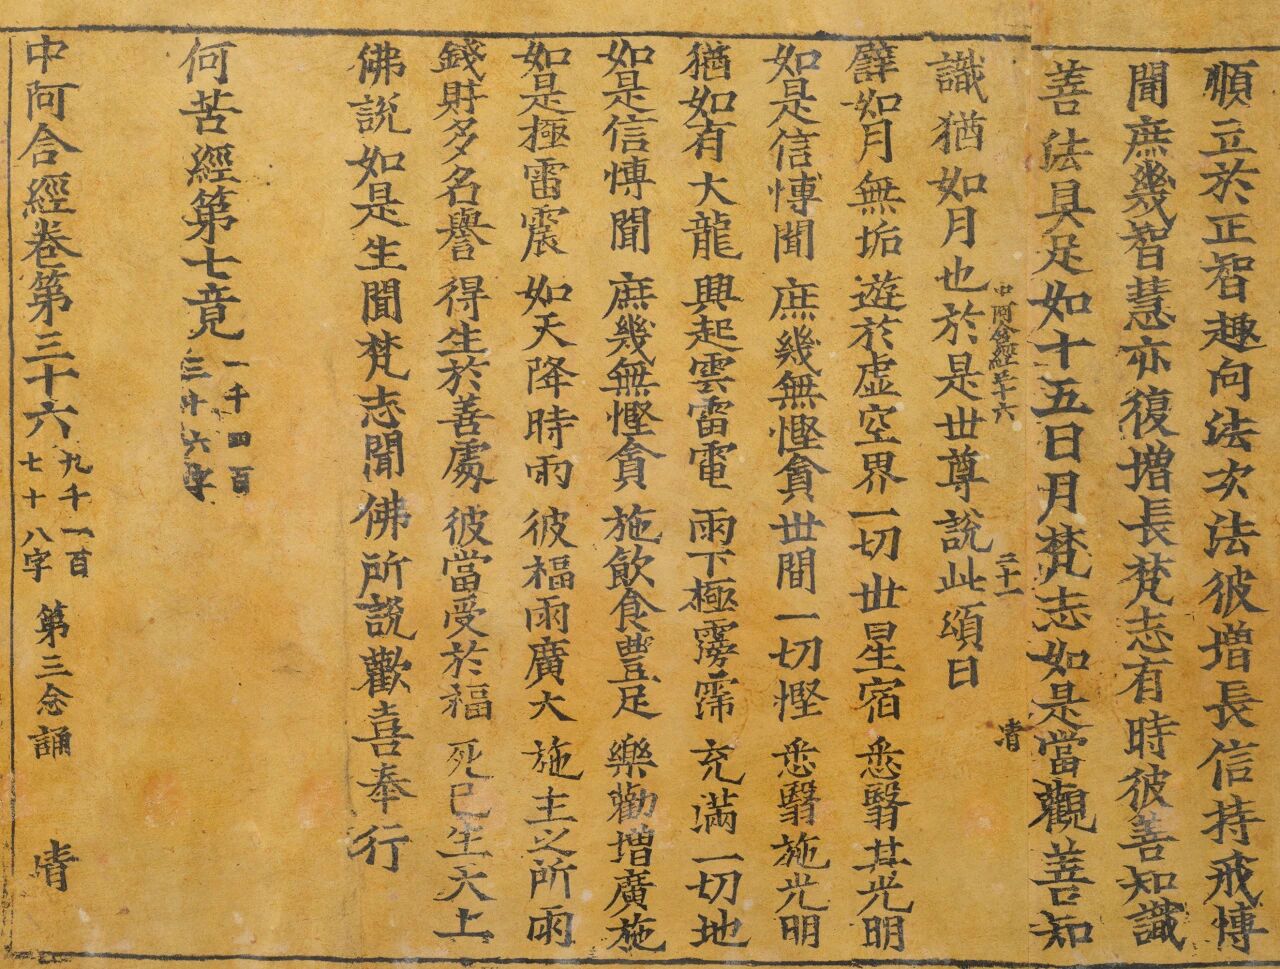 順立於正智趣向法次法彼增長信持戒愽
聞庶幾智慧亦復增長梵志有時彼善知識
善法具足如十五日月梵志如是當觀善知
中阿含經三十六　二十一　清
識猶如月也於是世尊說此頌曰
譬如月無垢　遊於虛空界　一切世星宿　悉翳其光明
如是信愽聞　庶幾無慳貪　世間一切慳　悉翳施光明
猶如有大龍　興起雲雷電　雨下極霶霈　充滿一切地
如是信愽聞　庶幾無慳貪　施飲食豐足　樂勸增廣施
如是極雷震　如天降時雨　彼福雨廣大　施主之所雨
錢財多名譽　得生於善處　彼當受於福　死已生天上
佛說如是生聞梵志聞佛所說歡喜奉行
何苦經第七竟　一千四百三十六字
中阿含經卷第三十六　九千一百七十八字　第三念誦　清